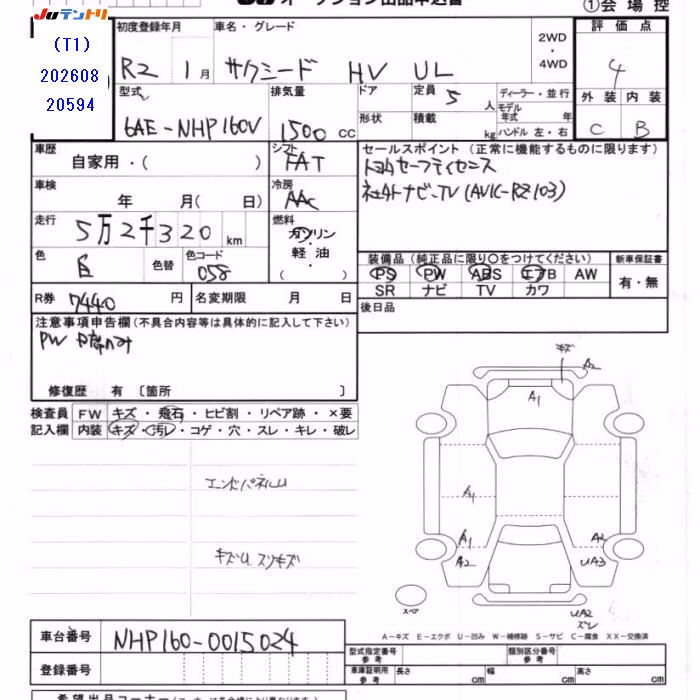 JUテントリ オークション出品申込書 ①会場控
(T1)
202608
20594
初度登録年月 車名・グレード 2WD・4WD 評価点
R2 1月 サクシード HV UL 4
型式 排気量 ドア 定員 5人 ディーラー・並行 外装 内装
6AE-NHP160V 1500cc 形状 積載 kg モデル年式 年 ハンドル 左・右 C B
車歴 シフト セールスポイント(正常に機能するものに限ります)
自家用・( ) FAT トヨタセーフティセンス
車検 冷房 社外ナビ・TV (AVIC-RZ103)
年 月( 日) AAC
走行 燃料
5万2千320km ガソリン・軽油・( )
色 色替 色コード 装備品(純正品に限り○をつけてください) 新車保証書
白 058 PS PW ABS エアB AW 有・無
SR ナビ TV カワ
R券 7440円 名変期限 月 日 後日品
注意事項申告欄(不具合内容等は具体的に記入して下さい)
PW
修復歴 有〔箇所 〕
検査員 FW キズ・飛石・ヒビ割・リペア跡・×要
記入欄 内装 キズ・汚レ・コゲ・穴・スレ・キレ・破レ
キズ A2
A1
エンドパネルU
A1
A1 A2
A2 UA3
キズU スリキズ
スペア
UA2
ズレ
A-キズ E-エクボ U-凹み W-補修跡 S-サビ C-腐食 XX-交換済
車台番号 NHP160-0015024
型式指定番号 参考 類別区分番号 参考
登録番号 車庫証明用 参考 長さ cm 幅 cm 高さ cm
希望出品コーナー